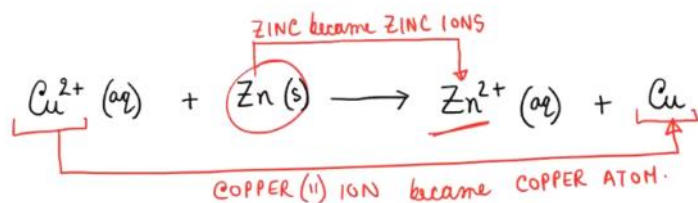 ZINC became ZINC IONS
Cu²⁺ (aq) + Zn (s) ⟶ Zn²⁺ (aq) + Cu
COPPER (II) ION became COPPER ATOM.